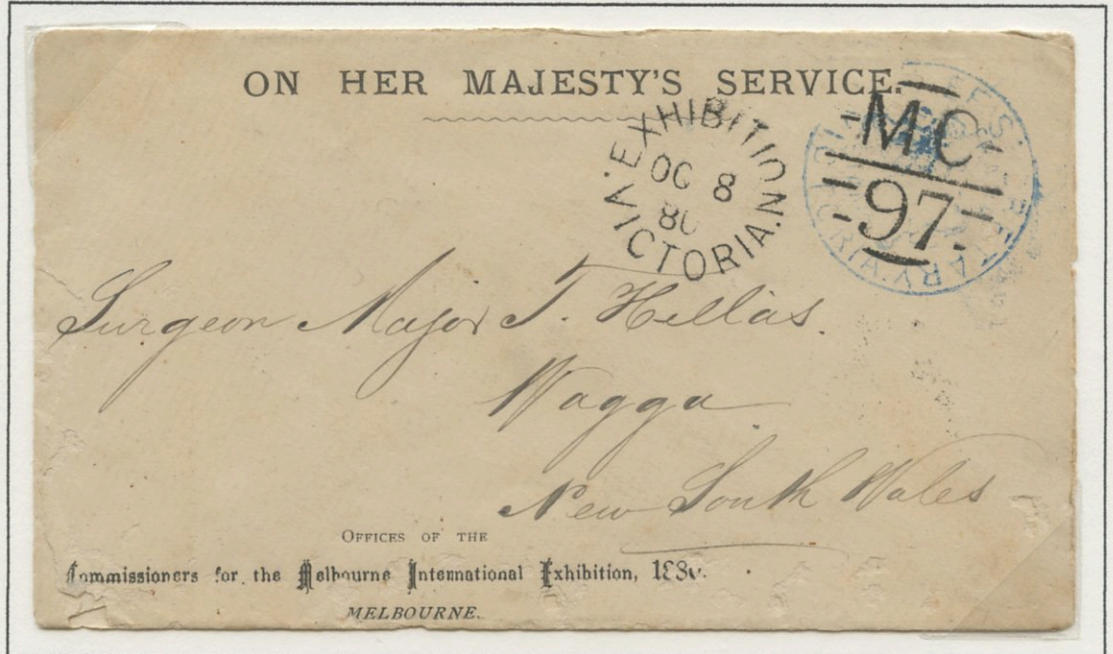 ON HER MAJESTY'S SERVICE.
EXHIBITION
OC 8
80
VICTORIA
MC
97.
Surgeon Major T. Hellas.
Wagga
New South Wales
OFFICES OF THE
Commissioners for the Melbourne International Exhibition, 1880.
MELBOURNE.